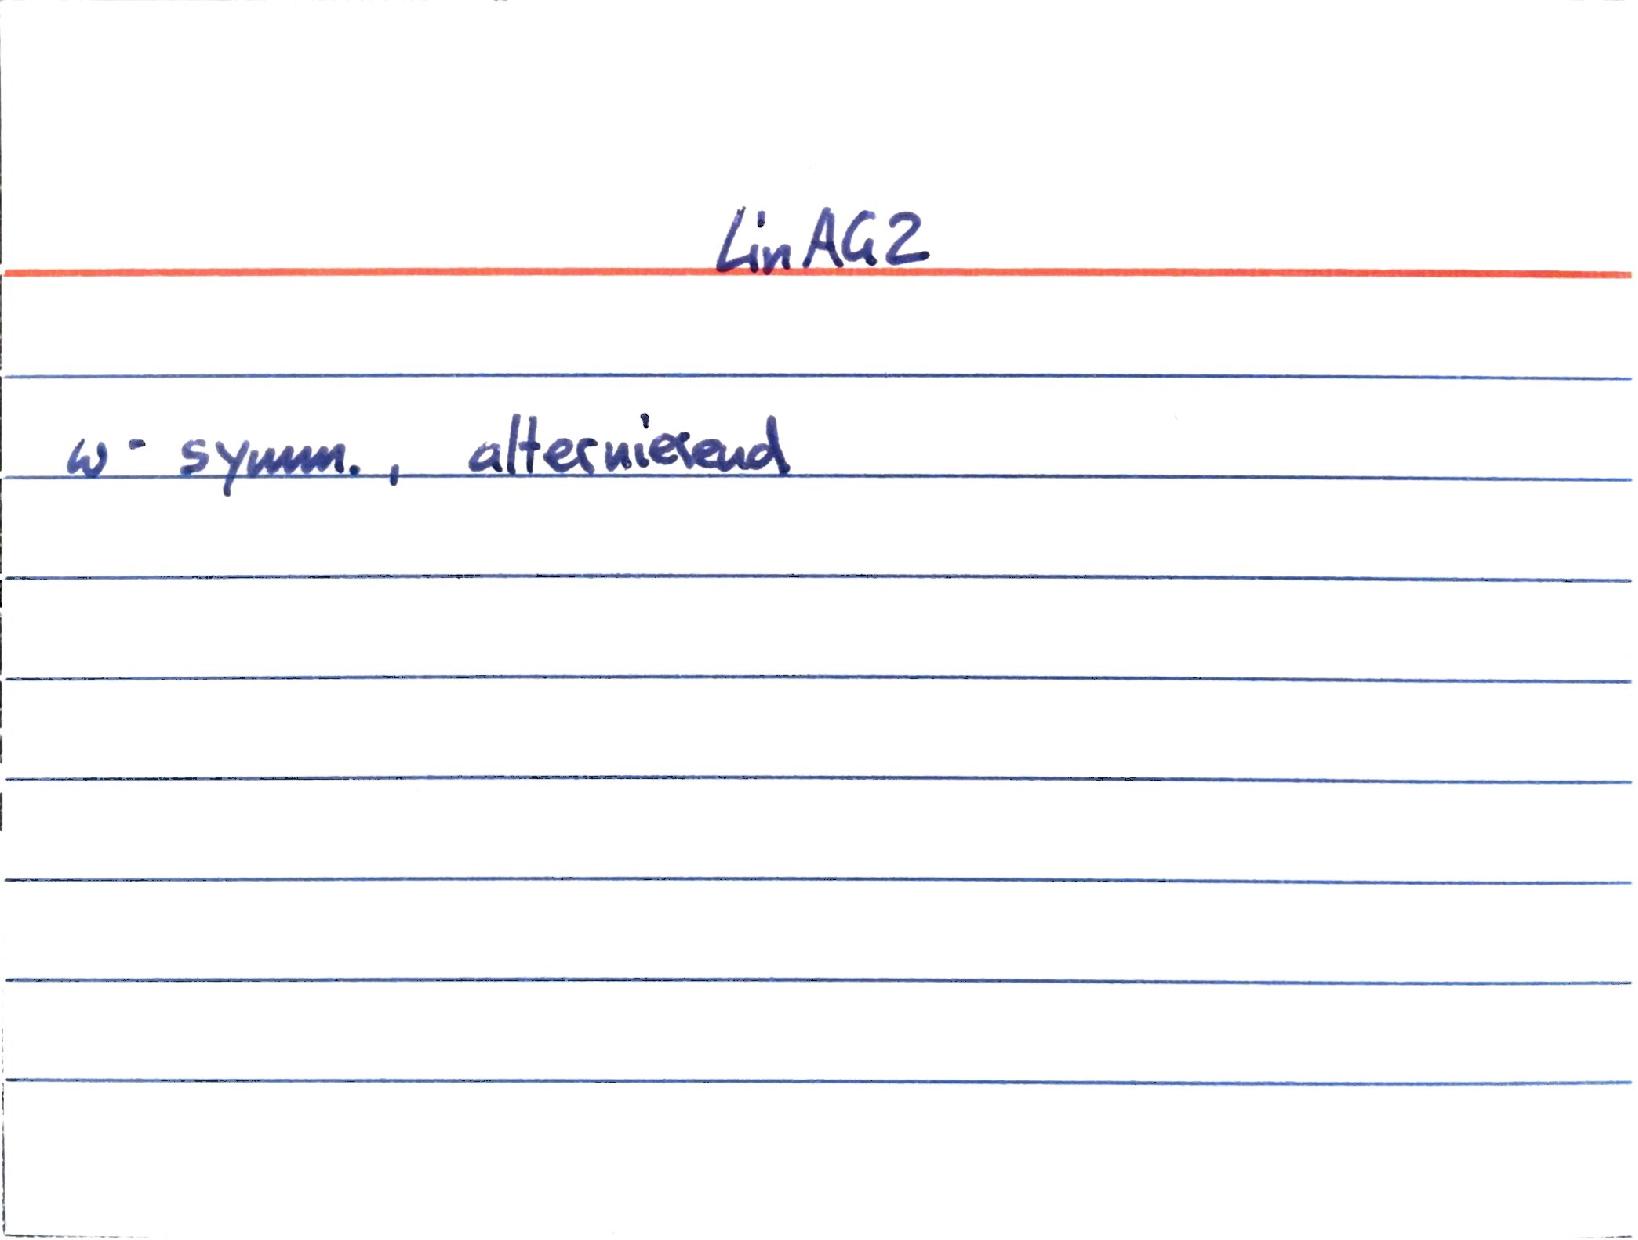 LinAG2
ω- symm., alternierend